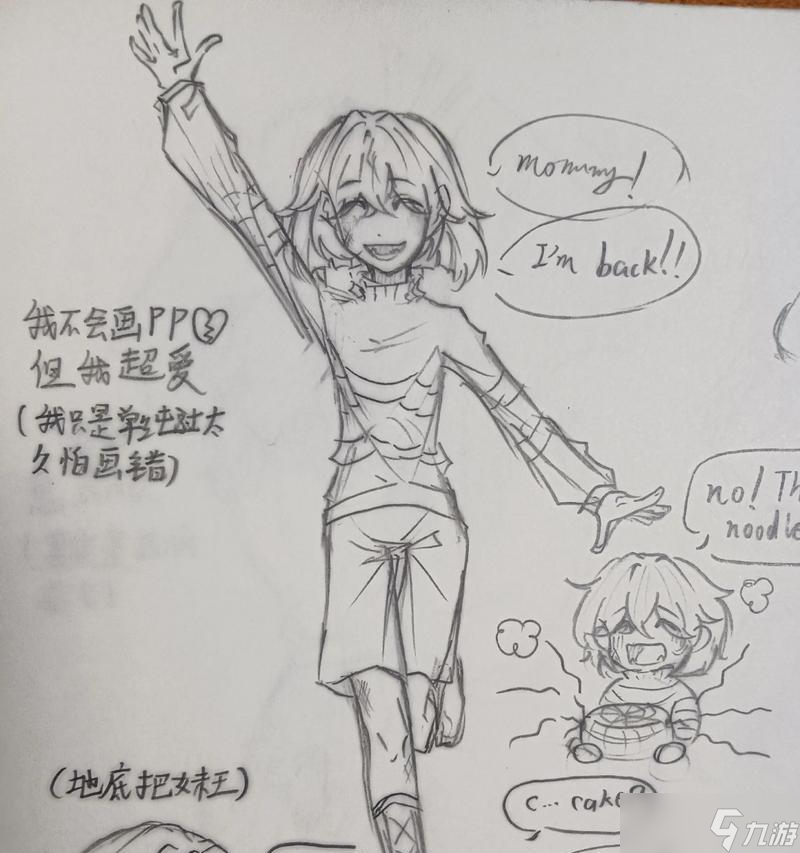 mommy!
I'm back!!
我不会画PP
但我超爱
(我只是单纯太
久怕画错)
no! Th
noodle
(地底把妹王)
c... cake?
九游